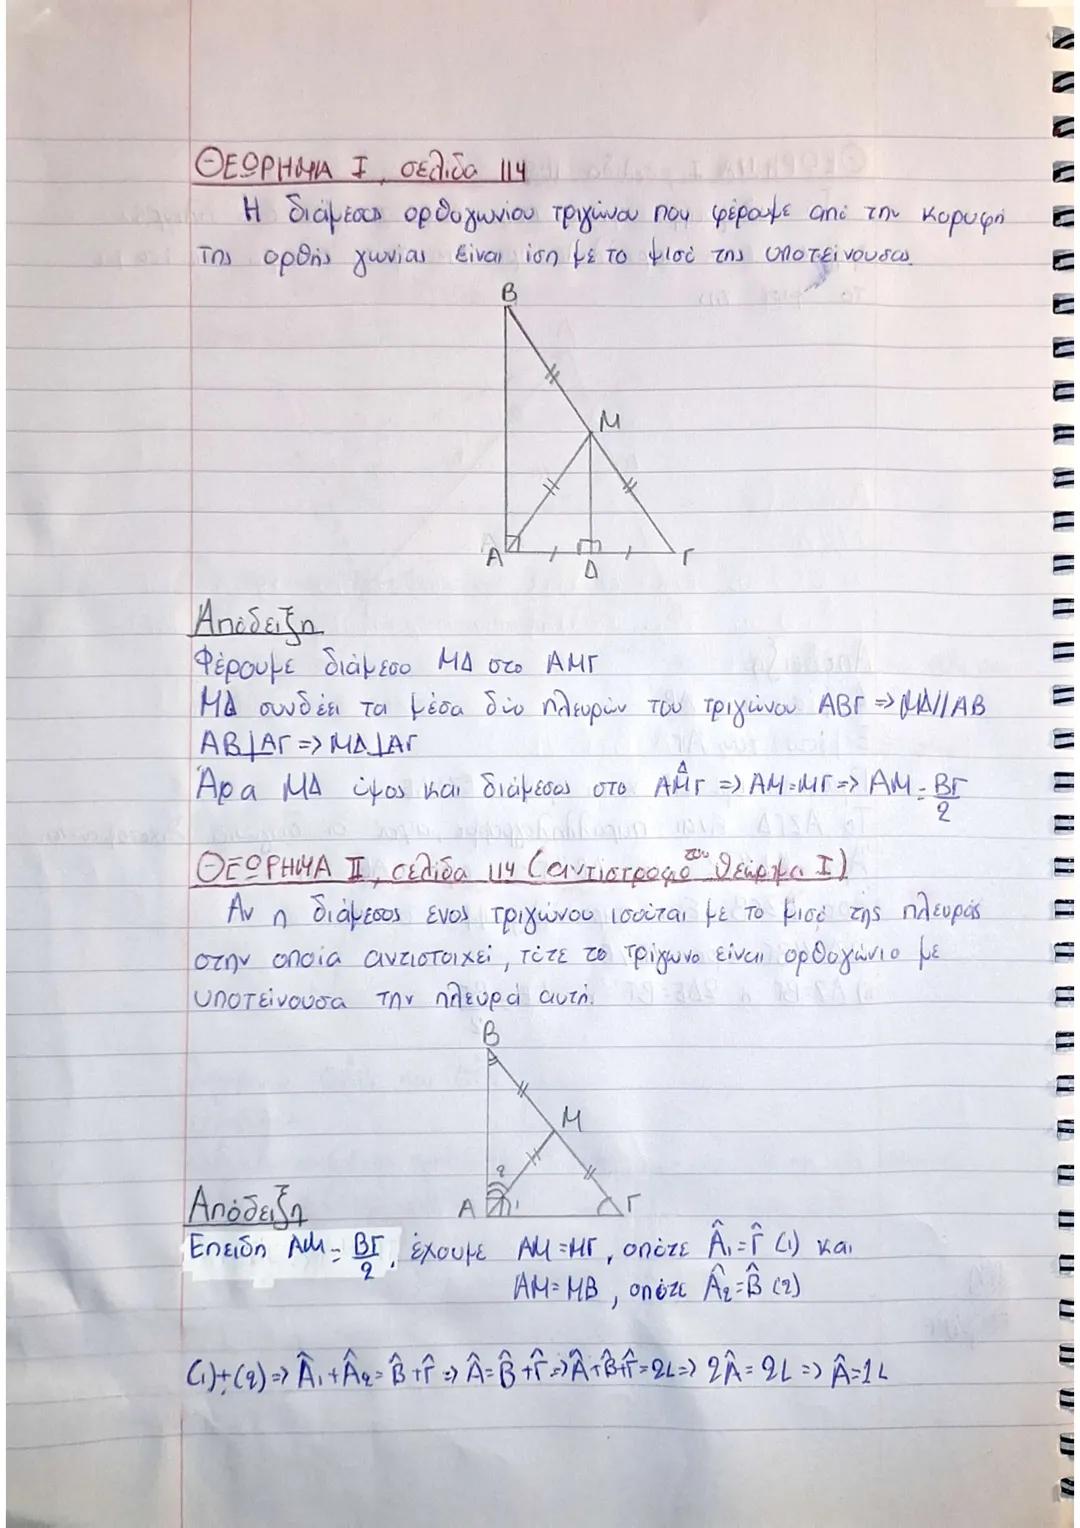 ΘΕΩΡΗΜΑ I, σελίδα 114
Η διάμεσος ορθογωνίου τριγώνου που φέρουμε από την κορυφή
της ορθής γωνίας είναι ίση με το μισό της υποτείνουσας
Β
Μ
Α Δ Γ
Απόδειξη
Φέρουμε διάμεσο ΜΔ στο ΑΜΓ
ΜΔ συνδέει τα μέσα δύο πλευρών του τριγώνου ΑΒΓ => ΜΔ//ΑΒ
ΑΒ⊥ΑΓ => ΜΔ⊥ΑΓ
Άρα ΜΔ ύψος και διάμεσος στο ΑΜ̂Γ => ΑΜ=ΜΓ => ΑΜ = ΒΓ/2
ΘΕΩΡΗΜΑ II, σελίδα 114 (αντίστροφο του θεώρημα I)
Αν η διάμεσος ενός τριγώνου ισούται με το μισό της πλευράς
στην οποία αντιστοιχεί, τότε το τρίγωνο είναι ορθογώνιο με
υποτείνουσα την πλευρά αυτή.
Β
Μ
2
Α 1 Γ
Απόδειξη
Επειδή ΑΜ = ΒΓ/2, έχουμε ΑΜ=ΜΓ, οπότε Â₁=Γ̂ (1) και
ΑΜ=ΜΒ, οπότε Â₂=Β̂ (2)
(1)+(2) => Â₁+Â₂=Β̂+Γ̂ => Â=Β̂+Γ̂ => Â+Β̂+Γ̂=2L => 2Â=2L => Â=1L